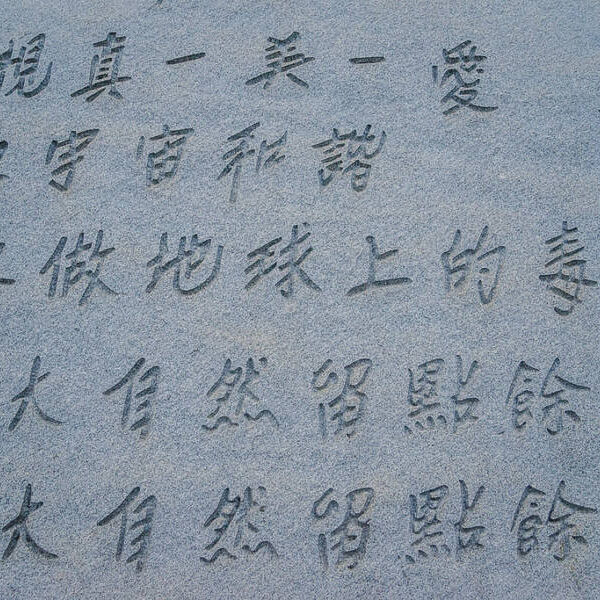 視真一美一愛
宇宙和諧
做地球上的毒
大自然留點餘
大自然留點餘